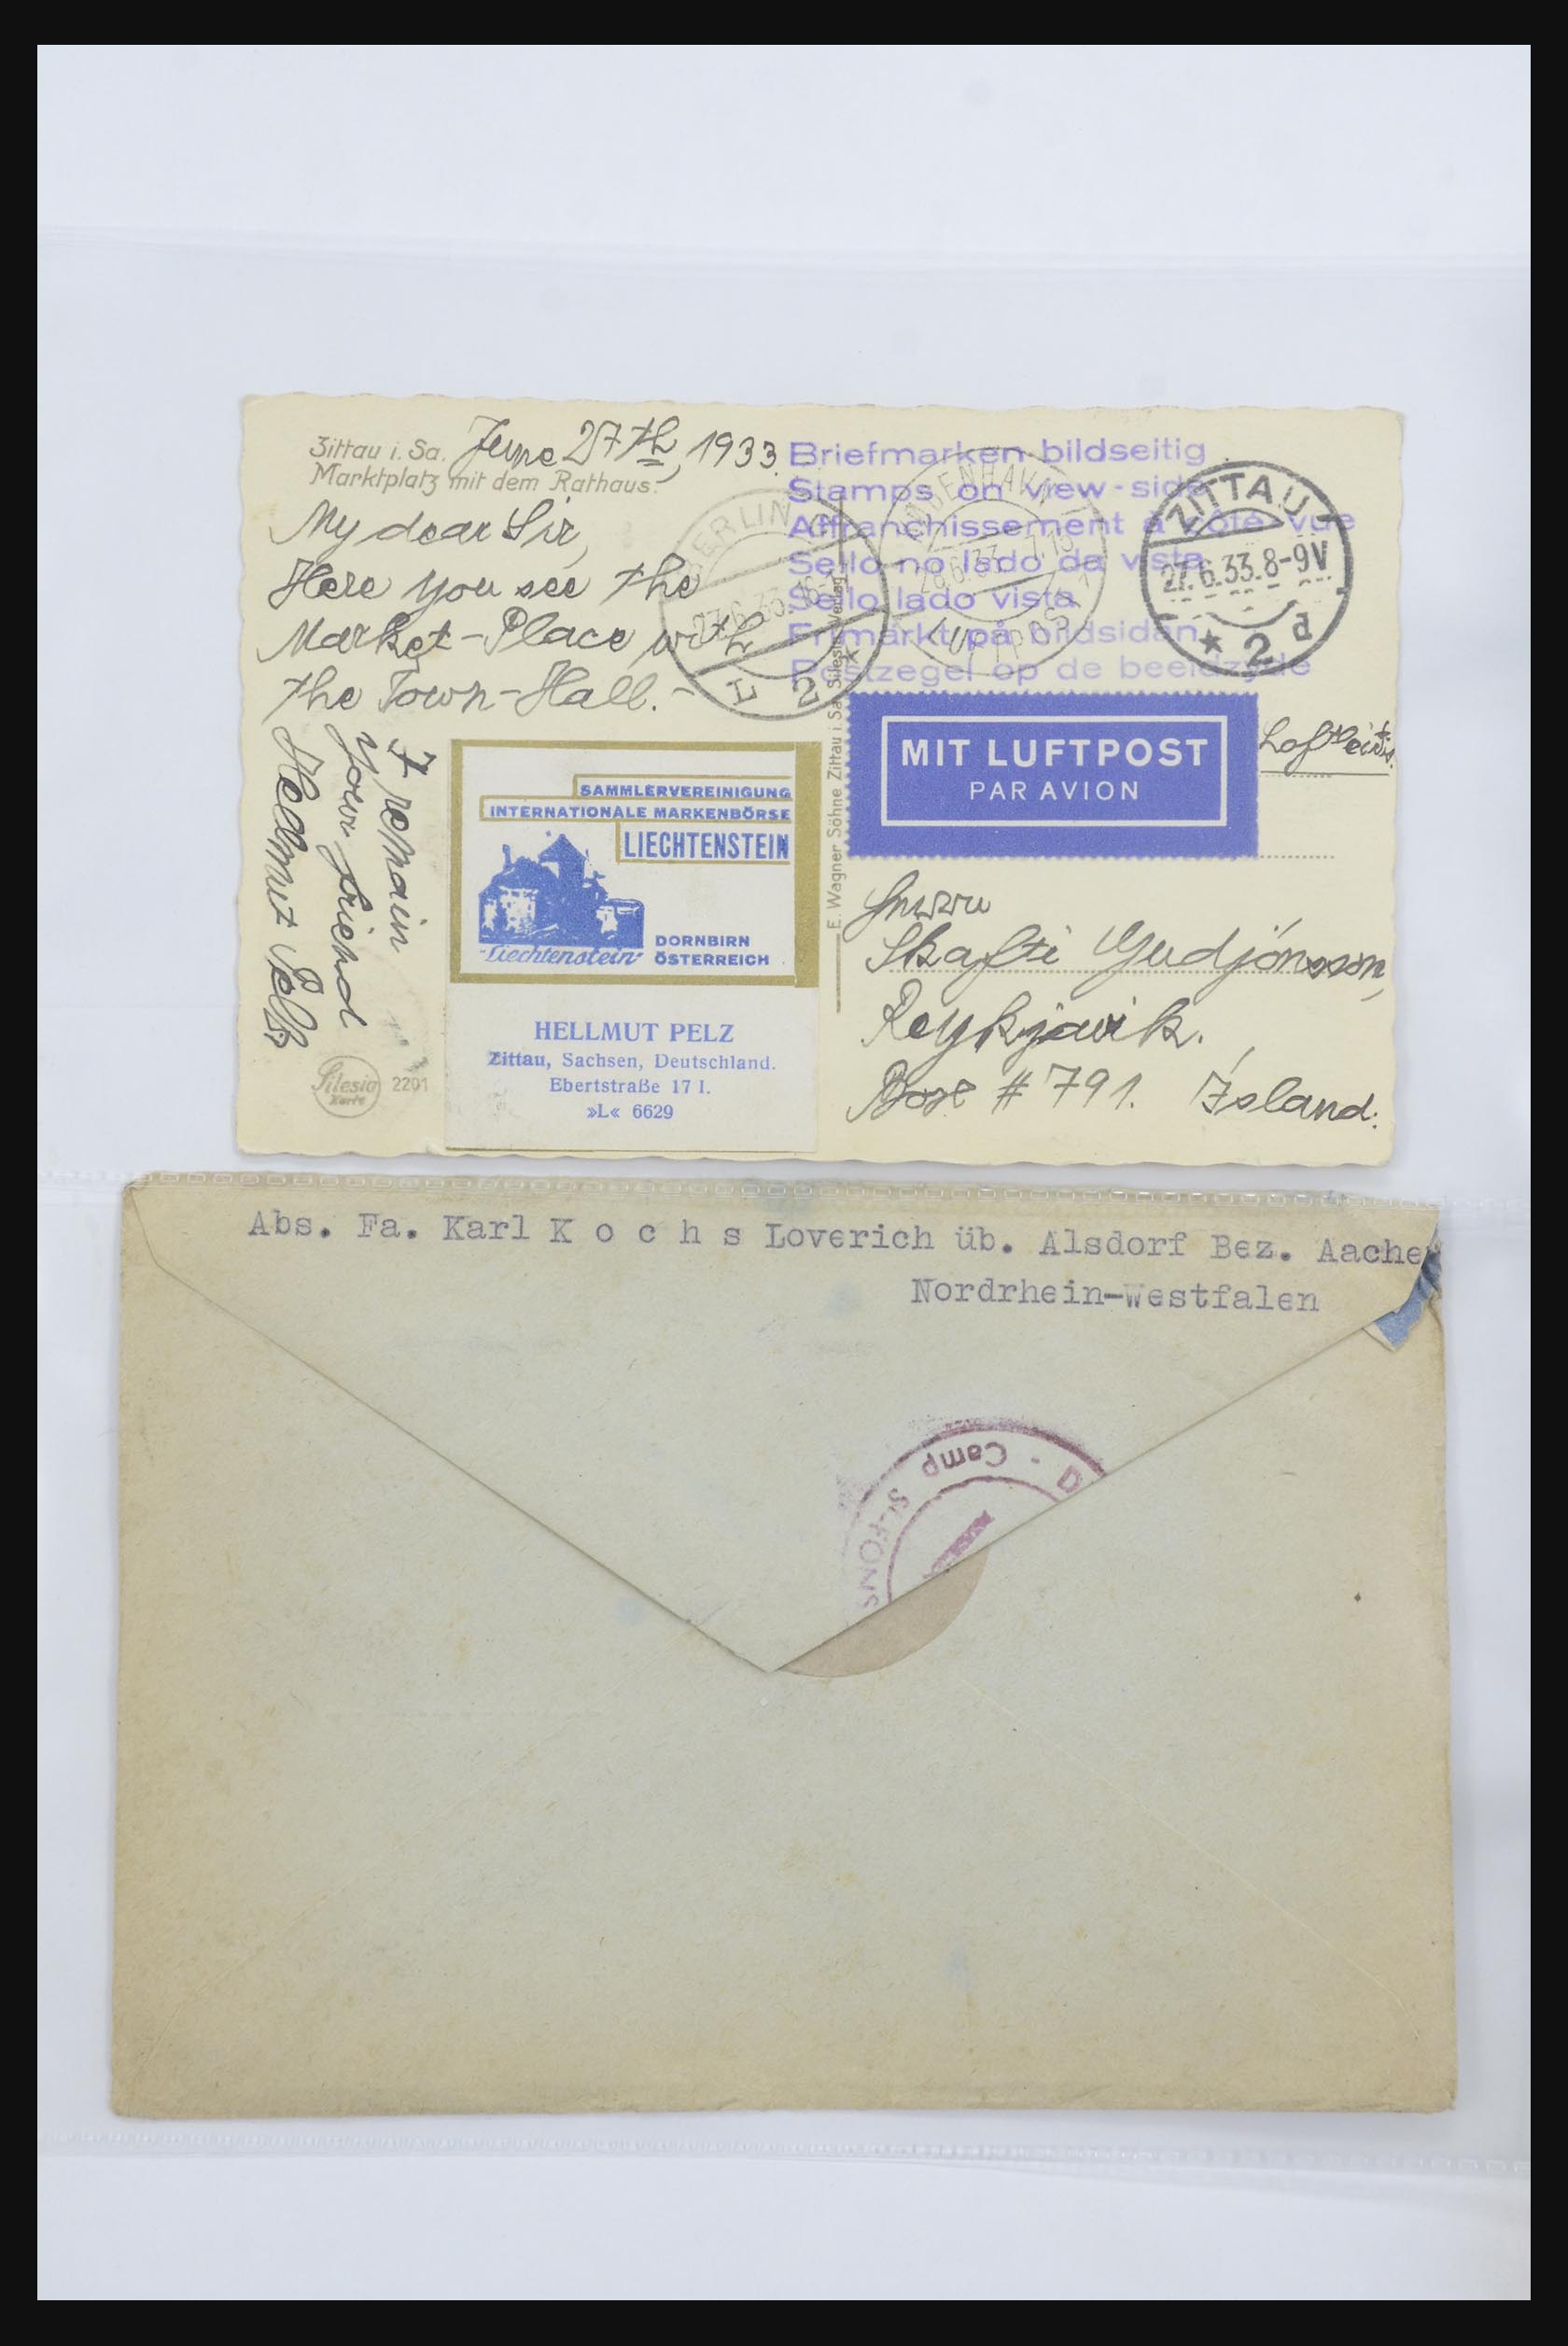 Zittau i. Sa.
Marktplatz mit dem Rathaus.
June 27th, 1933.
My dear Sir,
Here you see the
Market-Place with
the Town-Hall. -
I remain
your friend
Hellmut Pelz
Silesia
Karte
2201
BERLIN C
27.6.33.16-
L 2 *
Briefmarken bildseitig
Stamps on view-side
Affranchissement à côté vue
Sello no lado da vista
Sello lado vista
Frimärkt på bildsidan
Postzegel op de beeldzyde
KØBENHAVN
28.6.33. 7.15
LUFTPOST 1
ZITTAU
27.6.33.8-9V
* 2 d
E. Wagner Söhne Zittau i. Sa. Silesia-Verlag
MIT LUFTPOST
PAR AVION
Loftleiðis.
SAMMLERVEREINIGUNG
INTERNATIONALE MARKENBÖRSE
LIECHTENSTEIN
-Liechtenstein-
DORNBIRN
ÖSTERREICH
HELLMUT PELZ
Zittau, Sachsen, Deutschland.
Ebertstraße 17 I.
»L« 6629
Herrn
Skafti Gudjónsson,
Reykjavik.
Box # 791. Ísland.
Abs. Fa. Karl K o c h s Loverich üb. Alsdorf Bez. Aachen
Nordrhein-Westfalen
D - Camp